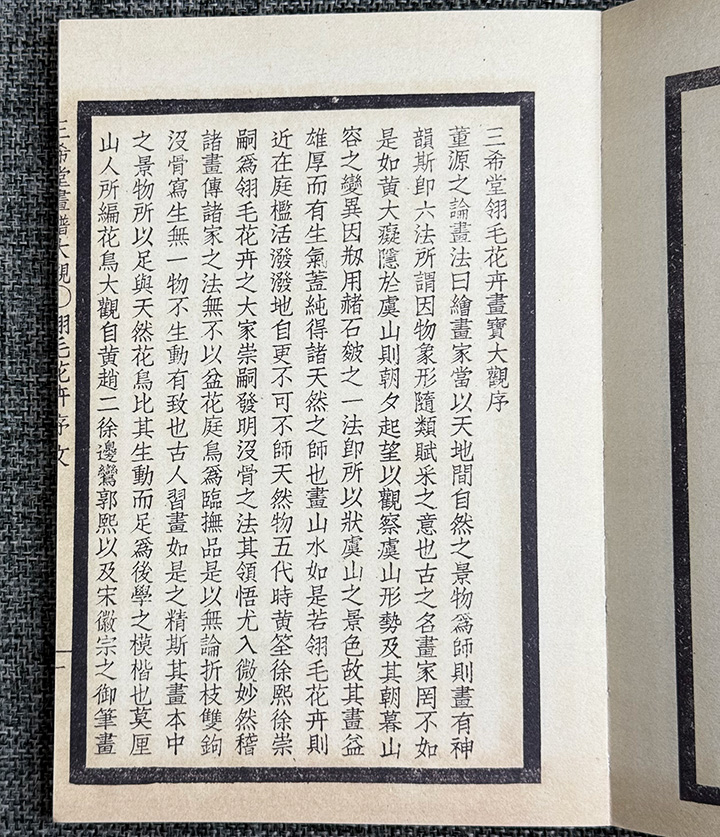 三希堂翎毛花卉畫寶大觀序
董源之論畫法曰繪畫家當以天地間自然之景物爲師則畫有神
韻斯卽六法所謂因物象形隨類賦采之意也古之名畫家罔不如
是如黃大癡隱於虞山則朝夕起望以觀察虞山形勢及其朝暮山
容之變異因剏用赭石皴之一法卽所以狀虞山之景色故其畫益
雄厚而有生氣蓋純得諸天然之師也畫山水如是若翎毛花卉則
近在庭檻活潑潑地自更不可不師天然物五代時黃筌徐熙徐崇
嗣爲翎毛花卉之大家崇嗣發明沒骨之法其領悟尤入微妙然稽
諸畫傳諸家之法無不以盆花庭鳥爲臨撫品是以無論折枝雙鉤
沒骨寫生無一物不生動有致也古人習畫如是之精斯其畫本中
之景物所以足與天然花鳥比其生動而足爲後學之模楷也莫厘
山人所編花鳥大觀自黃趙二徐邊鸞郭熙以及宋徽宗之御筆畫
三希堂畫譜大觀 翎毛花卉序文 一